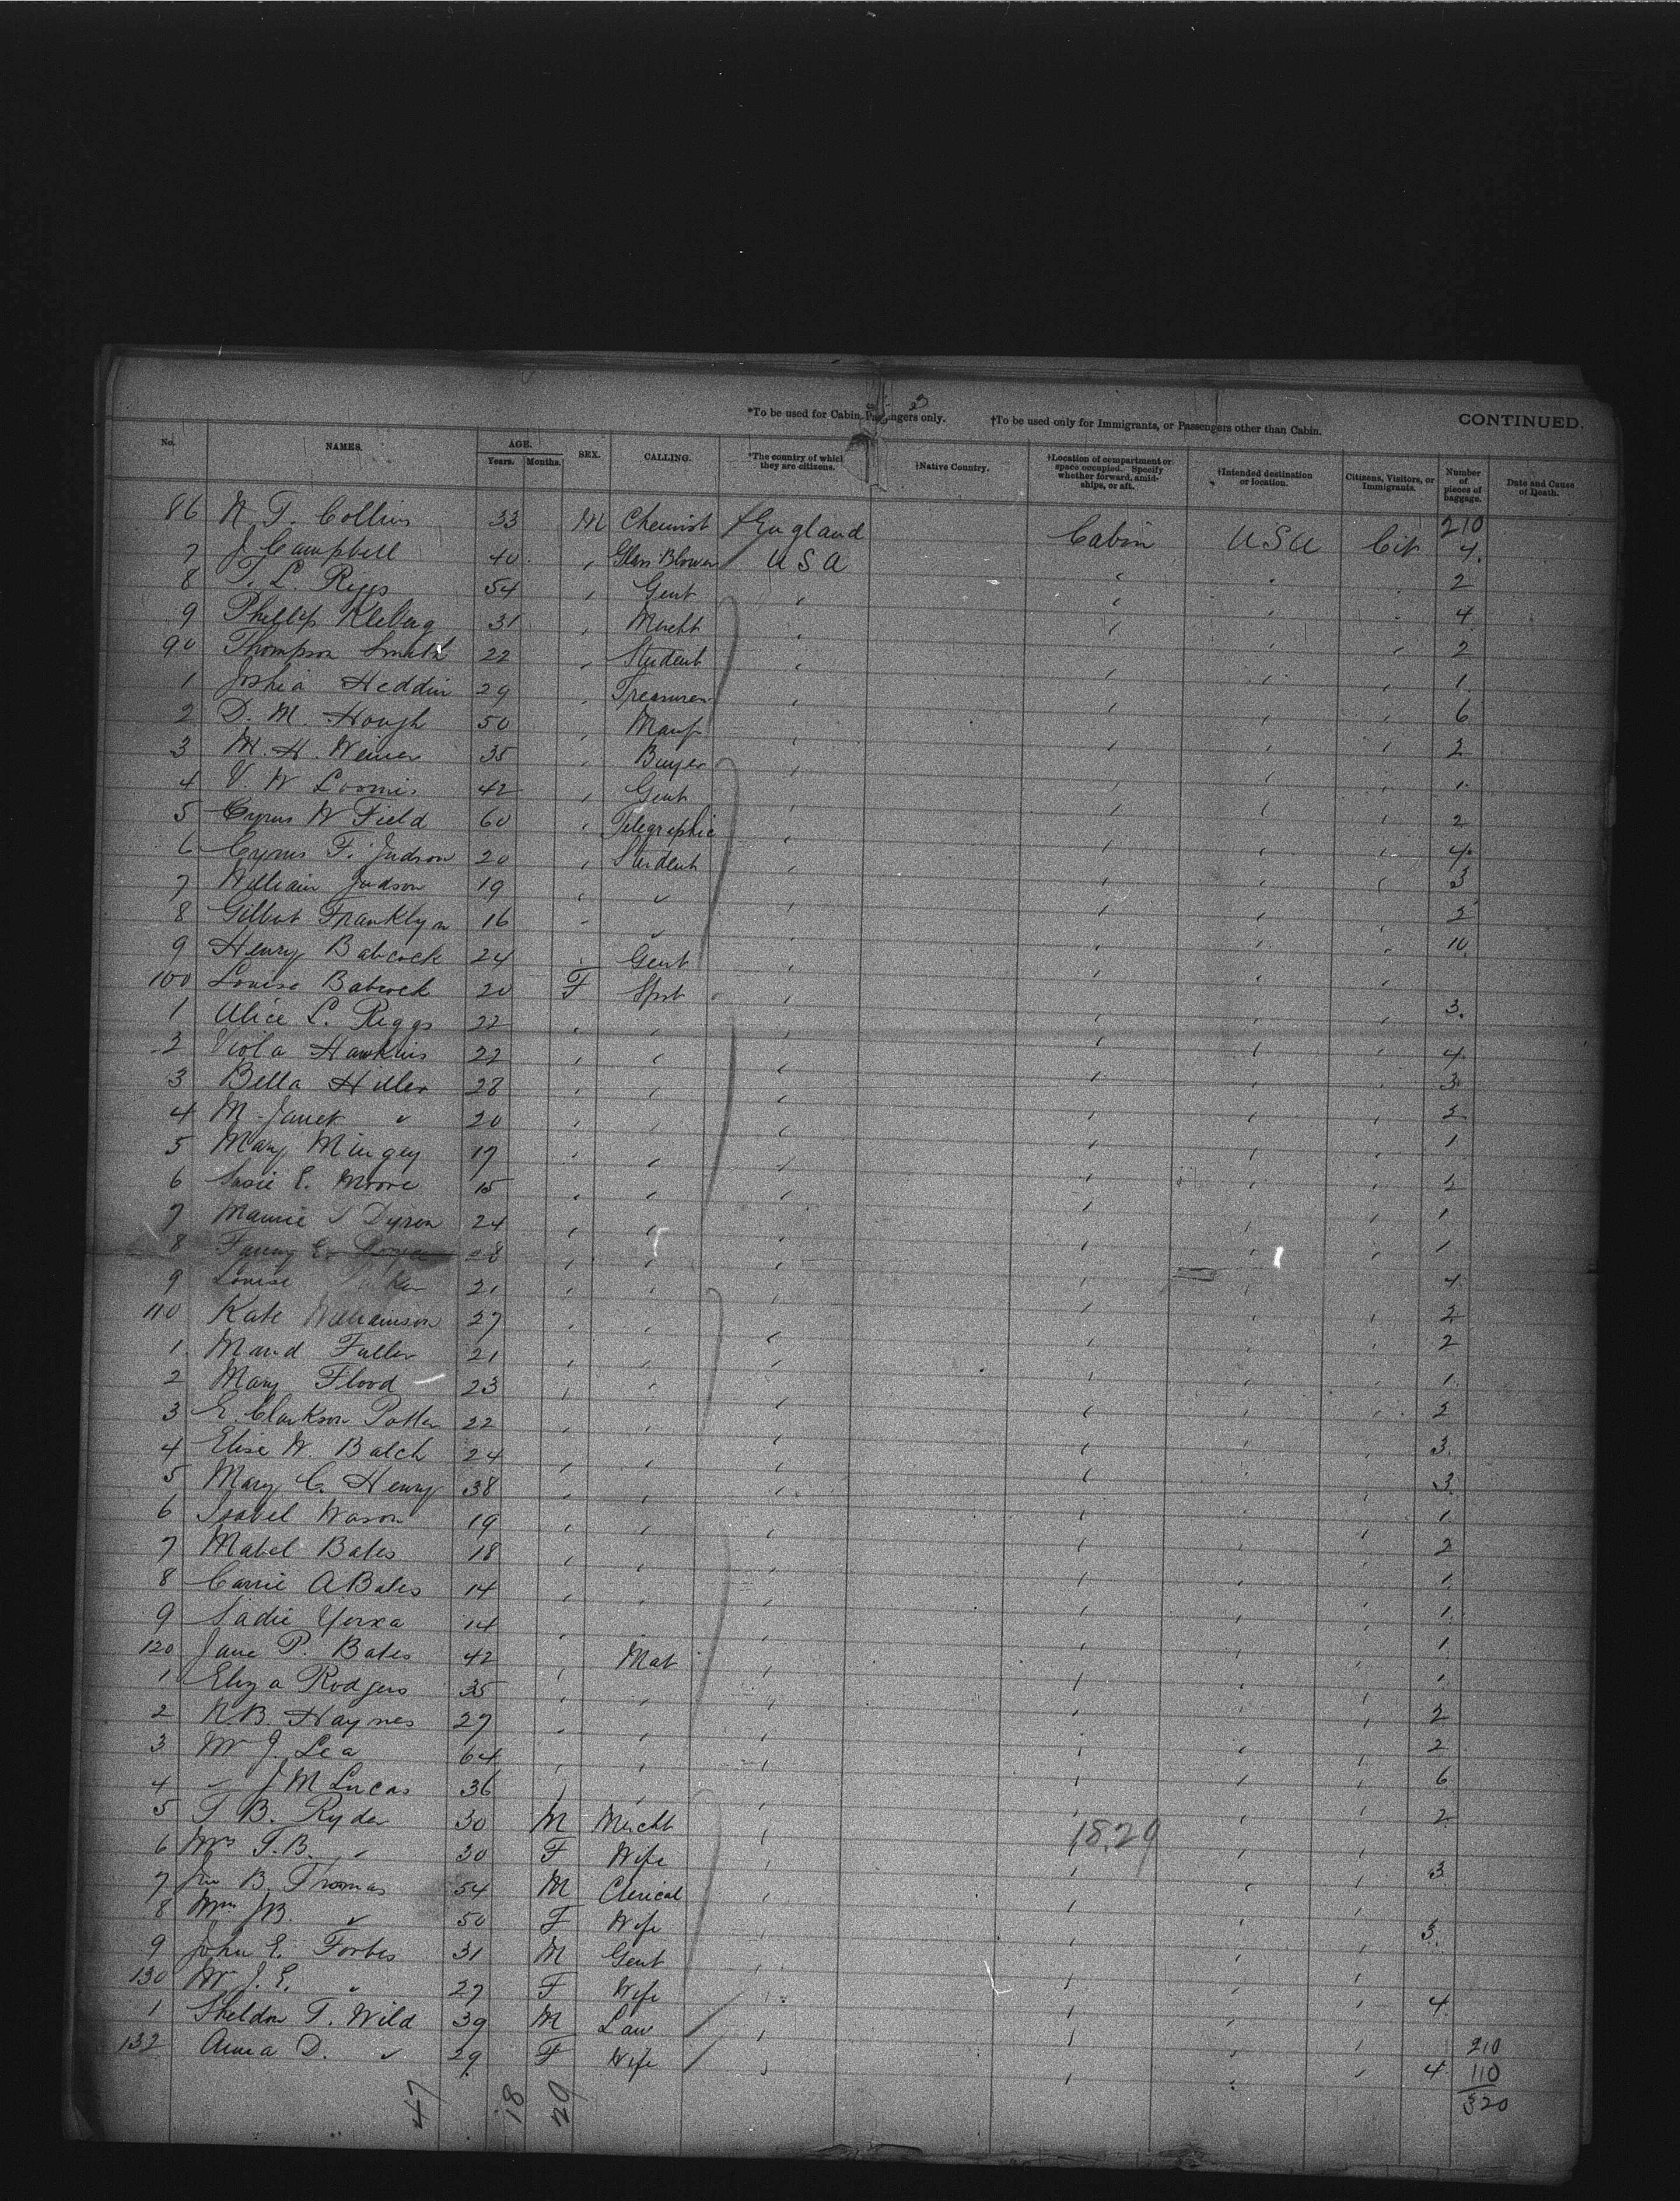 *To be used for Cabin Passengers only. †To be used only for Immigrants, or Passengers other than Cabin. CONTINUED.
No. NAMES. AGE. Years. Months. SEX. CALLING. *The country of which they are citizens. †Native Country. †Location of compartment or space occupied. Specify whether forward, amidships, or aft. †Intended destination or location. Citizens, Visitors, or Immigrants. Number of pieces of baggage. Date and Cause of Death.
210
86 N. T. Collins 33 M Chemist England Cabin USA Cit 4
7 J. Campbell 40 " Glass Blower USA " " 2
8 T. L. Riggs 54 " Gent " " " 4
9 Phillip Kleberg 31 " Mercht " " " " 2
90 Thompson Smith 22 " Student " " " " 1
1 Joshia Heddin 29 " Treasurer " " " " 6
2 D. M. Hough 50 " Manf " " " " 2
3 M. H. Weiner 35 " Buyer " " " 1
4 V. W Loomis 42 " Gent " " " " 2
5 Cyrus W Field 60 " Telegraphic " " " " 4
6 Cyrus F. Judson 20 " Student " " " " 3
7 William Judson 19 " " " " " 2
8 Gilbert Franklyn 16 " " " " " " 10
9 Henry Babcock 24 " Gent " " " "
100 Louise Babcock 20 F Spst " " " " 3
1 Alice L. Riggs 22 " " " " " " 4
2 Viola Hawkins 22 " " " " " " 3
3 Bella Hiller 28 " " " " " " 2
4 M. Janet " 20 " " " " " " 1
5 Mary Mingey 17 " " " " " " 2
6 Susie E. Moore 15 " " " " " 1
7 Mamie S Dyson 24 " " " " " " 1
8 Fanny E. 28 " " " " " 4
9 Louise 21 " " " " " " 2
110 Kate Williamson 27 " " " " " " 2
1 Maud Fuller 21 " " " " " " 1
2 Mary Flood 23 " " " " " " 2
3 E. Clarkson Potter 22 " " " " " 3
4 Elise W. Balch 24 " " " " " 3
5 Mary C. Henry 38 " " " " " 1
6 Isabel Wason 19 " " " " " 2
7 Mabel Bates 18 " " " " " " 1
8 Carrie A Bates 14 " " " " " " 1
9 Sadie Yerxa 14 " " " " " " 1
120 Jane P. Bates 42 " Mat " " " " 1
1 Eliza Rodgers 35 " " " " " 2
2 N.B. Haynes 27 " " " " " " 2
3 Mrs J. Lea 64 " " " " " " 6
4 " J M Lucas 36 " " " " " " 2
5 T. B. Ryder 30 M Mercht " 18.29 " "
6 Mrs T.B. " 30 F Wife " " " " 3
7 Jno B. Thomas 54 M Clerical " " " "
8 Mrs J.B. " 50 F Wife " " " " 3
9 John E. Forbes 31 M Gent " " " "
130 Mrs J. E. " 27 F Wife " " " " 4
1 Sheldon T. Wild 39 M Law " " " " 210
132 Anna D. " 29 F Wife " " " " 4 110
47 18 29 320